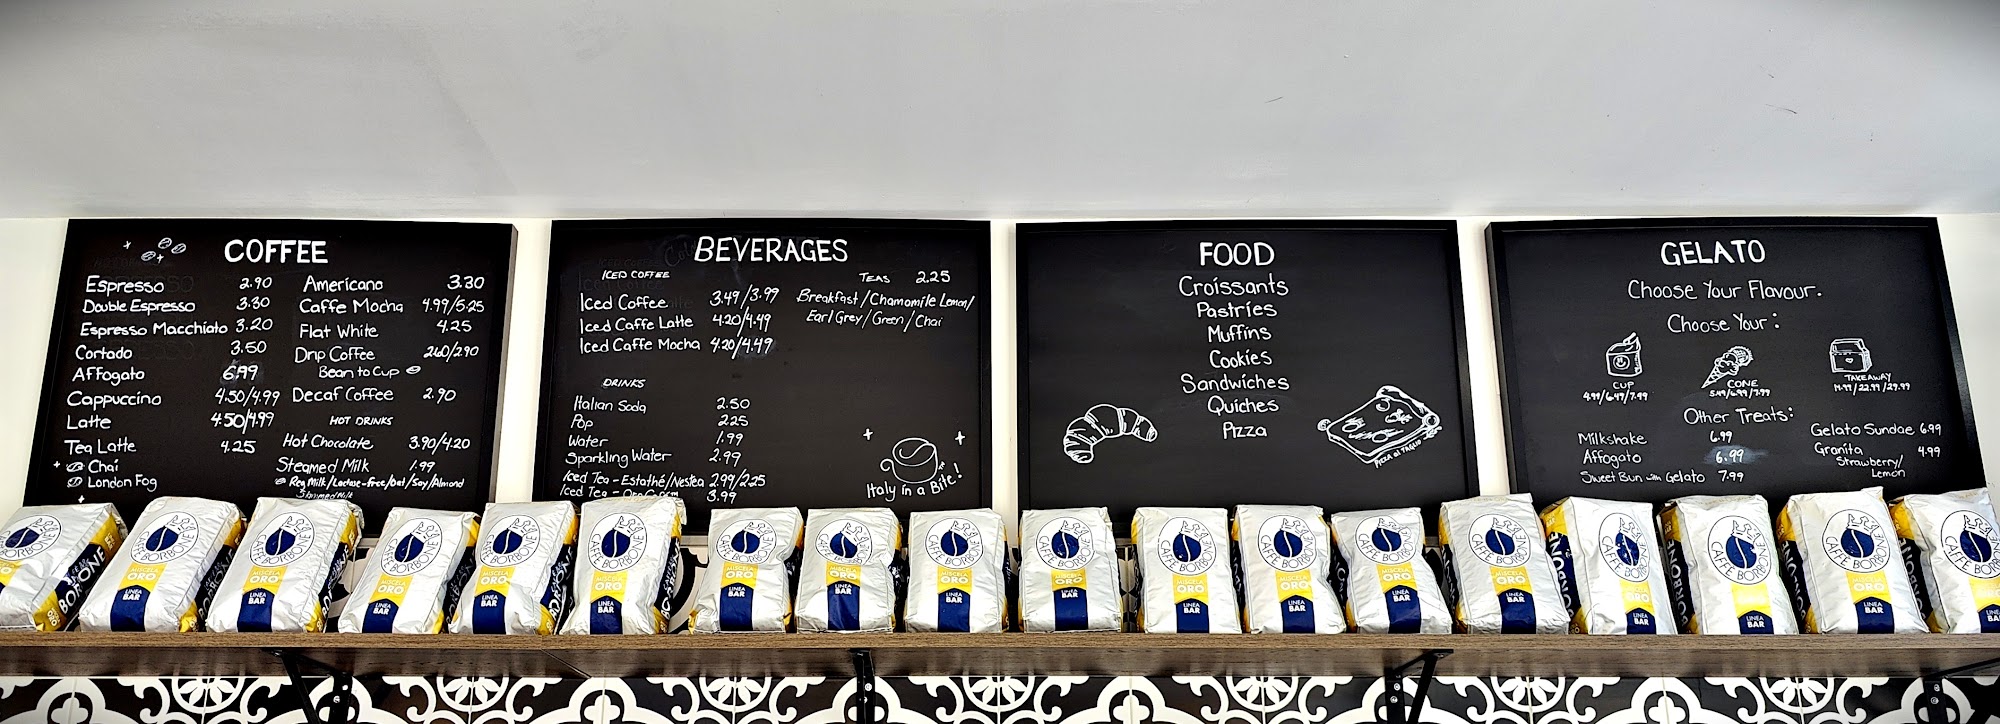 COFFEE
Espresso 2.90
Double Espresso 3.30
Espresso Macchiato 3.20
Cortado 3.50
Affogato 6.99
Cappuccino 4.50/4.99
Latte 4.50/4.99
Tea Latte 4.25
Chai
London Fog
Americano 3.30
Caffe Mocha 4.99/5.25
Flat White 4.25
Drip Coffee 2.60/2.90
Bean to Cup
Decaf Coffee 2.90
HOT DRINKS
Hot Chocolate 3.90/4.20
Steamed Milk 1.99
Reg Milk/Lactose-free/Oat/Soy/Almond
Steamed Milk
BEVERAGES
ICED COFFEE
Iced Coffee 3.49/3.99
Iced Caffe Latte 4.20/4.49
Iced Caffe Mocha 4.20/4.49
DRINKS
Italian Soda 2.50
Pop 2.25
Water 1.99
Sparkling Water 2.99
Iced Tea - Estathé/Nestea 2.99/2.25
Iced Tea - 3.99
TEAS 2.25
Breakfast/Chamomile Lemon/
Earl Grey/Green/Chai
Italy in a Bite!
FOOD
Croissants
Pastries
Muffins
Cookies
Sandwiches
Quiches
Pizza
PIZZA al TAGLIO
GELATO
Choose Your Flavour.
Choose Your:
CUP
4.99/6.49/7.49
CONE
5.49/6.99/7.99
TAKEAWAY
14.99/22.99/29.99
Other Treats:
Milkshake 6.99
Affogato 6.99
Sweet Bun with Gelato 7.99
Gelato Sundae 6.99
Granita 4.99
Strawberry/
Lemon
CAFFÈ BORBONE
MISCELA
ORO
LINEA
BAR